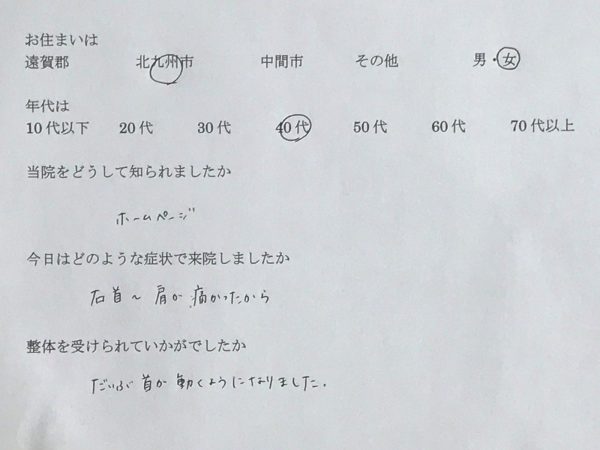 お住まいは
遠賀郡 北九州市 中間市 その他 男・女
年代は
10代以下 20代 30代 40代 50代 60代 70代以上
当院をどうして知られましたか
ホームページ
今日はどのような症状で来院しましたか
右首〜肩が痛かったから
整体を受けられていかがでしたか
だいぶ首が動くようになりました。